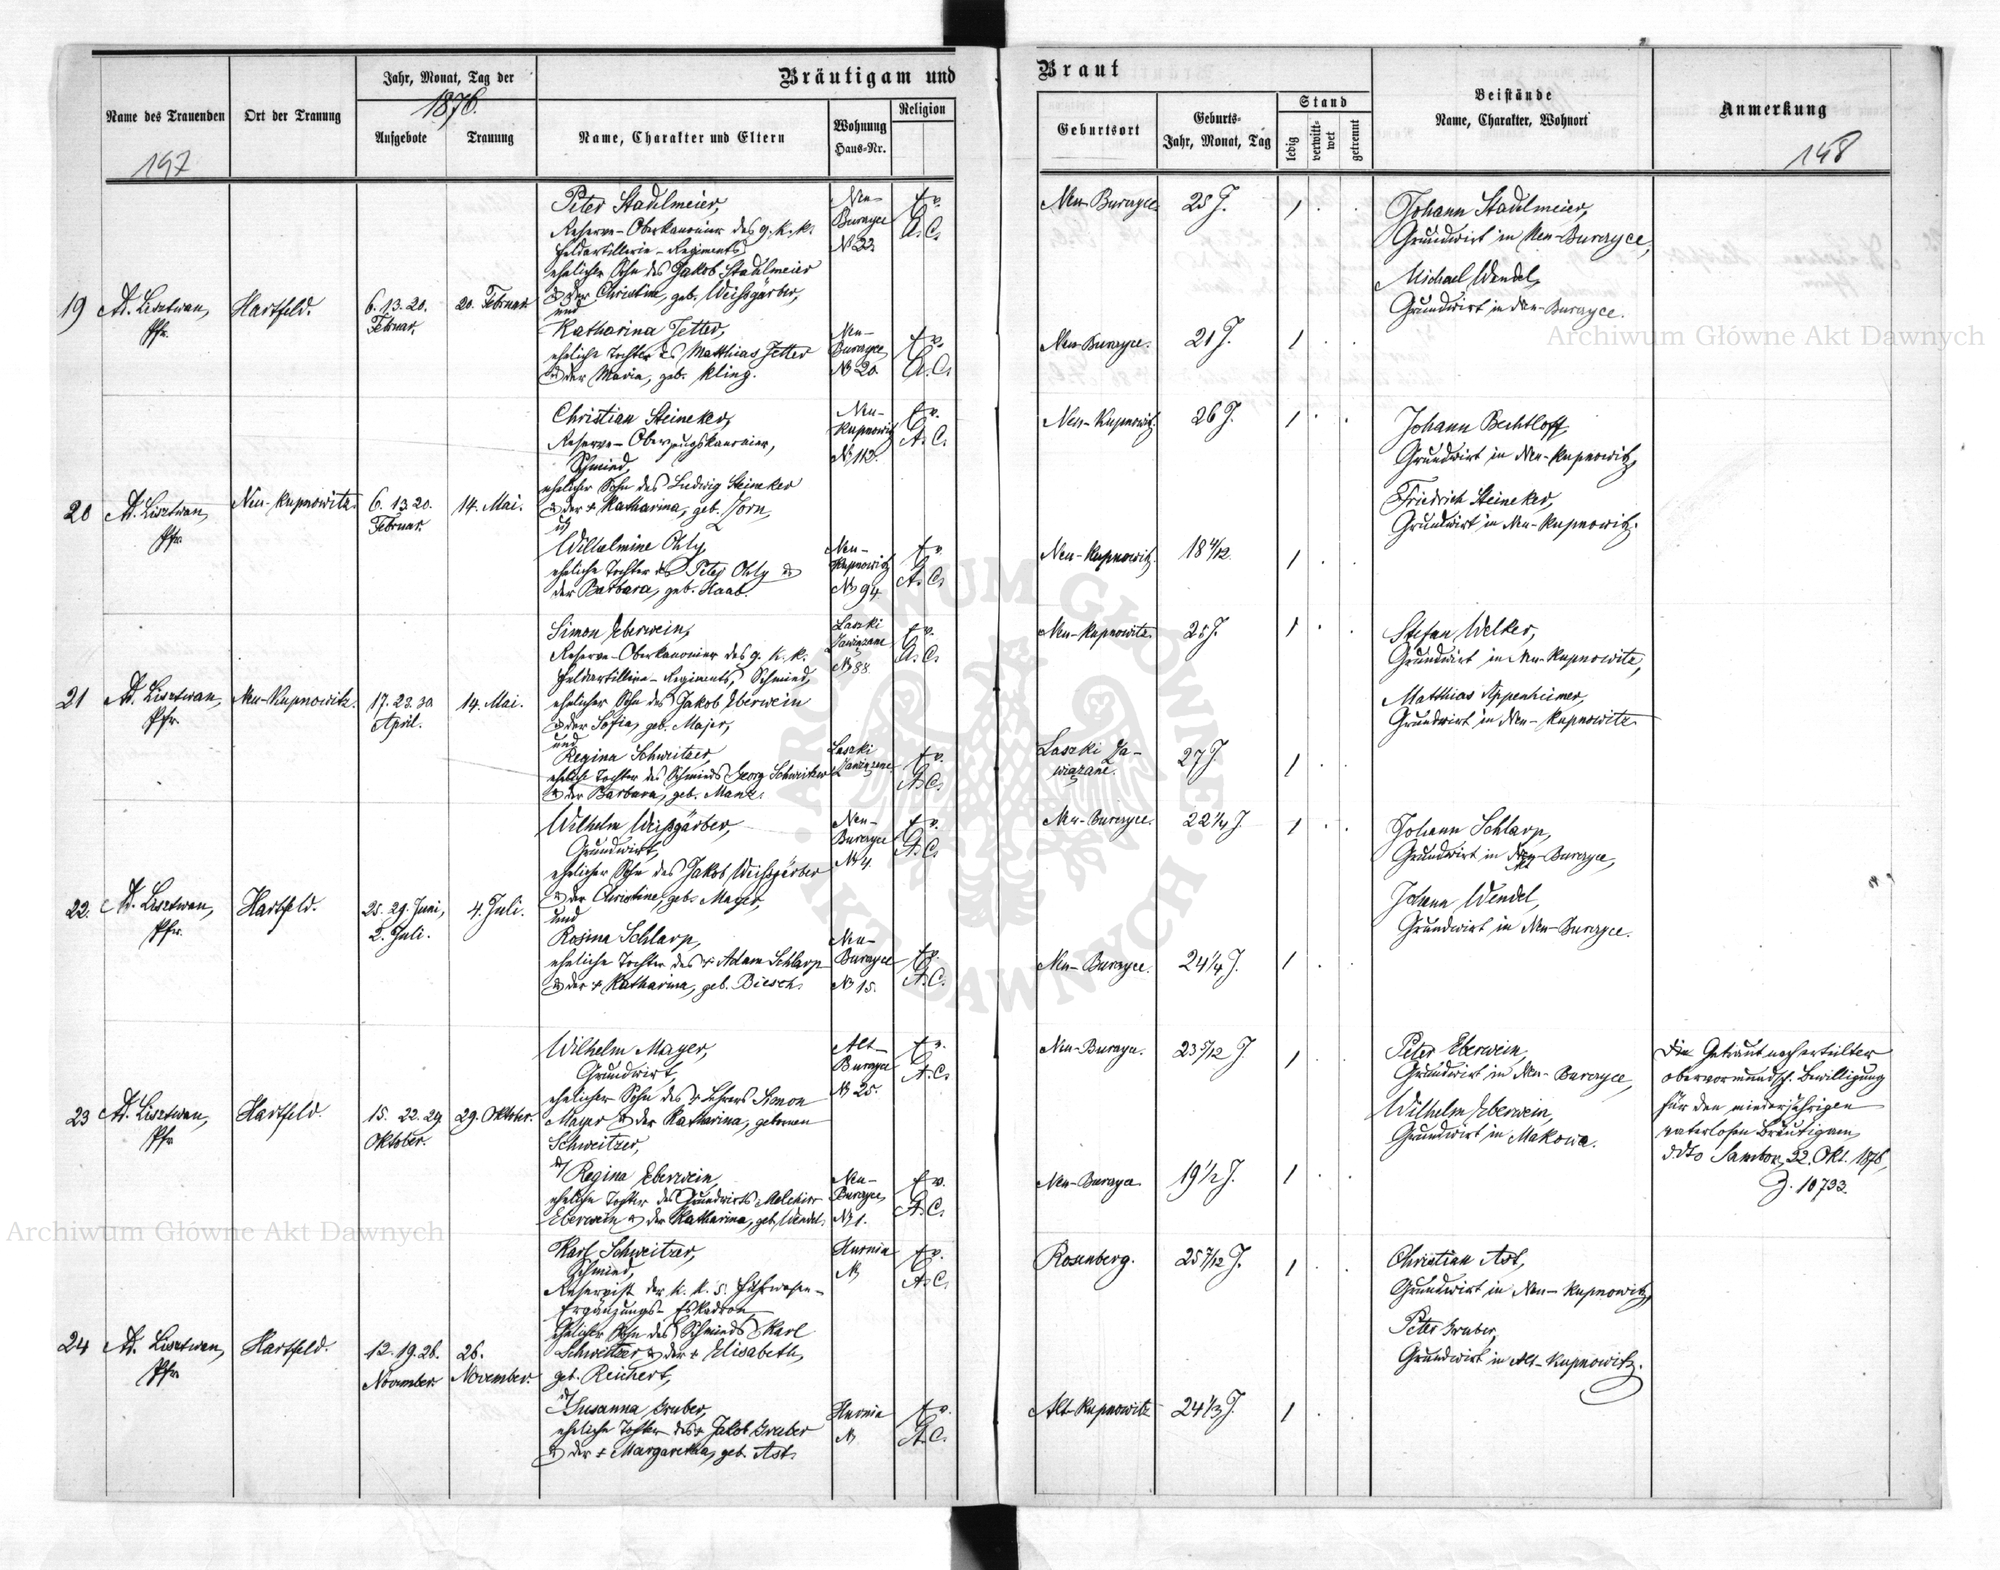 Bräutigam und Braut
Name des Trauenden
Ort der Trauung
Jahr, Monat, Tag der
1876.
Aufgebote
Trauung
Name, Charakter und Eltern
Wohnung
Haus-Nr.
Religion
Geburtsort
Geburts-
Jahr, Monat, Tag
Stand
ledig
verwitt-
wet
getrennt
Beistände
Name, Charakter, Wohnort
Anmerkung
197
198
19
Ad. Lisztwan,
Pfr.
Hartfeld.
6. 13. 20.
Februar.
20. Februar.
Peter Stadlmeier,
Reserve-Oberkanonier des 9. k. k.
Feldartillerie-Regiments,
ehelicher Sohn des Jakob Stadlmeier
u. der Christine, geb. Weißgärber,
und
Katharina Jetter,
eheliche Tochter des Matthias Jetter
u. der Maria, geb. Kling.
Neu-
Burczyce
No 22
Ev.
A. C.
Neu-
Burczyce
No 20.
Ev.
A. C.
Neu-Burczyce
25 J.
1 . .
Neu-Burczyce.
21 J.
1 . .
Johann Stadlmeier,
Grundwirt in Neu-Burczyce,
Michael Wendel,
Grundwirt in Neu-Burczyce.
20
Ad. Lisztwan,
Pfr.
Neu-Kupnowitz.
6. 13. 20.
Februar.
14. Mai.
Christian Steineker,
Reserve-Oberzugskanonier,
Schmied,
ehelicher Sohn des Ludwig Steineker
u. der + Katharina, geb. Zorn,
u.
Wilhelmine Ohly,
eheliche Tochter des Peter Ohly u.
der Barbara, geb. Haab.
Neu-
Kupnowitz
No 112.
Ev.
A. C.
Neu-
Kupnowitz
No 94.
Ev.
A. C.
Neu-Kupnowitz.
26 J.
1 . .
Neu-Kupnowitz.
18 4/12
1 . .
Johann Bechtloff,
Grundwirt in Neu-Kupnowitz,
Friedrich Steineker,
Grundwirt in Neu-Kupnowitz.
21
Ad. Lisztwan,
Pfr.
Neu-Kupnowitz.
17. 23. 30.
April.
14. Mai.
Simon Eberwein,
Reserve-Oberkanonier des 9. k. k.
Feldartillerie-Regiments, Schmied,
ehelicher Sohn des Jakob Eberwein
u. der Sofia, geb. Majer,
und
Regina Schweitzer,
eheliche Tochter des Schmieds Georg Schweitzer
u. der Barbara, geb. Manz.
Laszki
Zawiązane
No 88.
Ev.
A. C.
Laszki
Zawiązane
Ev.
A. C.
Neu-Kupnowitz.
25 J.
1 . .
Laszki Za-
wiązane.
27 J.
1 . .
Stefan Welker,
Grundwirt in Neu-Kupnowitz,
Matthias Oppenheimer,
Grundwirt in Neu-Kupnowitz.
22.
Ad. Lisztwan,
Pfr.
Hartfeld.
25. 29. Juni,
2. Juli.
4. Juli.
Wilhelm Weißgärber,
Grundwirt,
ehelicher Sohn des Jakob Weißgärber
u. der Christine, geb. Mayer,
und
Rosina Schlarp,
eheliche Tochter des + Adam Schlarp
u. der + Katharina, geb. Biesch.
Neu-
Burczyce
No 4.
Ev.
A. C.
Neu-
Burczyce
No 15.
Ev.
A. C.
Neu-Burczyce.
22 1/4 J.
1 . .
Neu-Burczyce.
24 1/4 J.
1 . .
Johann Schlarp,
Grundwirt in Alt-Burczyce,
Johann Wendel,
Grundwirt in Neu-Burczyce.
23
Ad. Lisztwan,
Pfr.
Hartfeld.
15. 22. 29.
Oktober.
29. Oktober.
Wilhelm Mayer,
Grundwirt,
ehelicher Sohn des + Lehrers Simon
Mayer u. der Katharina, gebornen
Schweitzer,
u. Regina Eberwein,
eheliche Tochter des Grundwirts Melchior
Eberwein u. der Katharina, geb. Wendel.
Alt-
Burczyce
No 25.
Ev.
A. C.
Neu-
Burczyce,
No 1.
Ev.
A. C.
Neu-Burczyce.
23 5/12 J.
1 . .
Neu-Burczyce
19 1/2 J.
1 . .
Peter Eberwein,
Grundwirt in Neu-Burczyce,
Wilhelm Eberwein,
Grundwirt in Makowa.
Die Getraut nach erteilter
obervormundsch. Bewilligung
für den minderjährigen
vaterlosen Bräutigam,
ddto Sambor, 22. Okt. 1876,
Z. 10733.
24
Ad. Lisztwan,
Pfr.
Hartfeld.
12. 19. 26.
November.
26.
November.
Karl Schweitzer,
Schmied,
Reservist der k. k. 5. Fuhrwesen-
Ergänzungs-Eskadron,
ehelicher Sohn des Schmieds Karl
Schweitzer u. der + Elisabeth,
geb. Reichert,
u. Susanna Gruber,
eheliche Tochter des + Jakob Gruber
u. der + Margaretha, geb. Ast.
Hurnie
No
Ev.
A. C.
Hurnie
No
Ev.
A. C.
Rosenberg.
25 7/12 J.
1 . .
Alt-Kupnowitz
24 1/3 J.
1 . .
Christian Ast,
Grundwirt in Neu-Kupnowitz,
Peter Gruber,
Grundwirt in Alt-Kupnowitz.
Archiwum Główne Akt Dawnych
Archiwum Główne Akt Dawnych
ARCHIWUM GŁÓWNE
AKT DAWNYCH